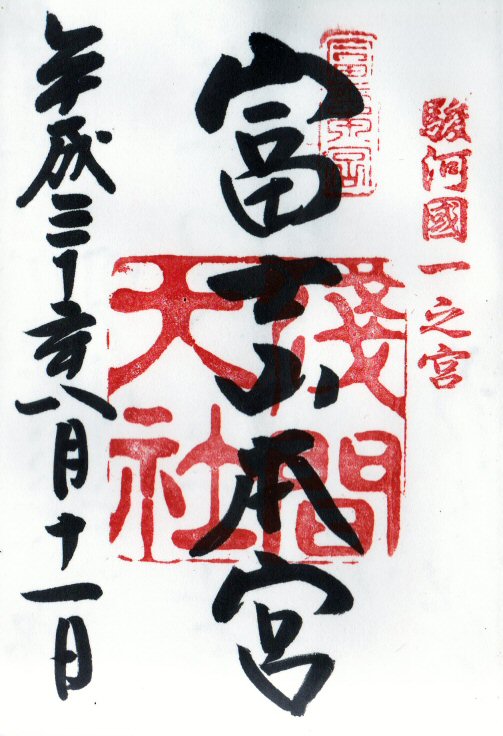 駿河國一之宮
富士山本宮
淺間大社
平成三十年八月十一日